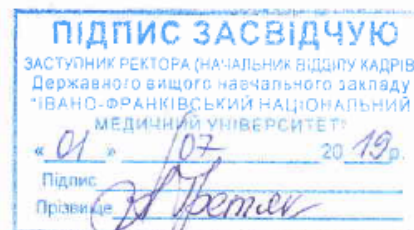 ПІДПИС ЗАСВІДЧУЮ
ЗАСТУПНИК РЕКТОРА (НАЧАЛЬНИК ВІДДІЛУ КАДРІВ
Державного вищого навчального закладу
"ІВАНО-ФРАНКІВСЬКИЙ НАЦІОНАЛЬНИЙ
МЕДИЧНИЙ УНІВЕРСИТЕТ"
« 01 » 07 20 19р.
Підпис
Прізвище